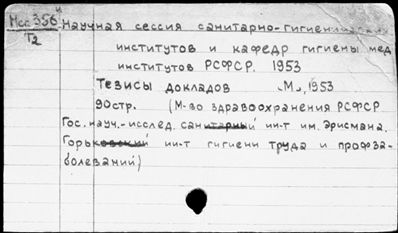 Мсс 356 и
T2
Научная сессия санитарно-гигиенических
институтов и кафедр гигиены мед
институтов РСФСР. 1953
Тезисы докладов „М., 1953
90стр. (М-во здравоохранения РСФСР
Гос. науч.-исслед. санитарный ин-т им. Эрисмана.
Горьковский ин-т гигиени труда и профза-
болеваний)